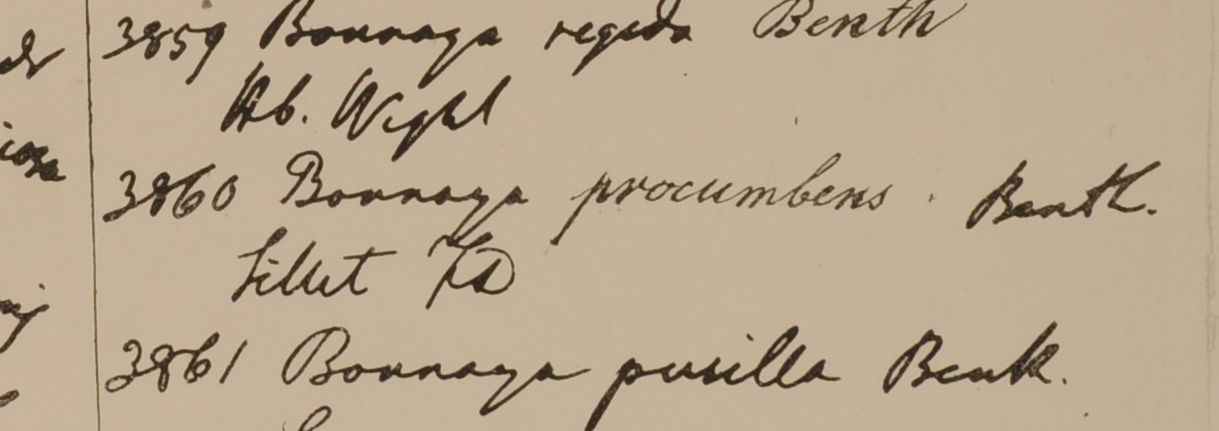 3859 Bonnaya regida Benth
Hb. Wight
3860 Bonnaya procumbens. Benth.
Sillet FD
3861 Bonnaya pusilla Benth.